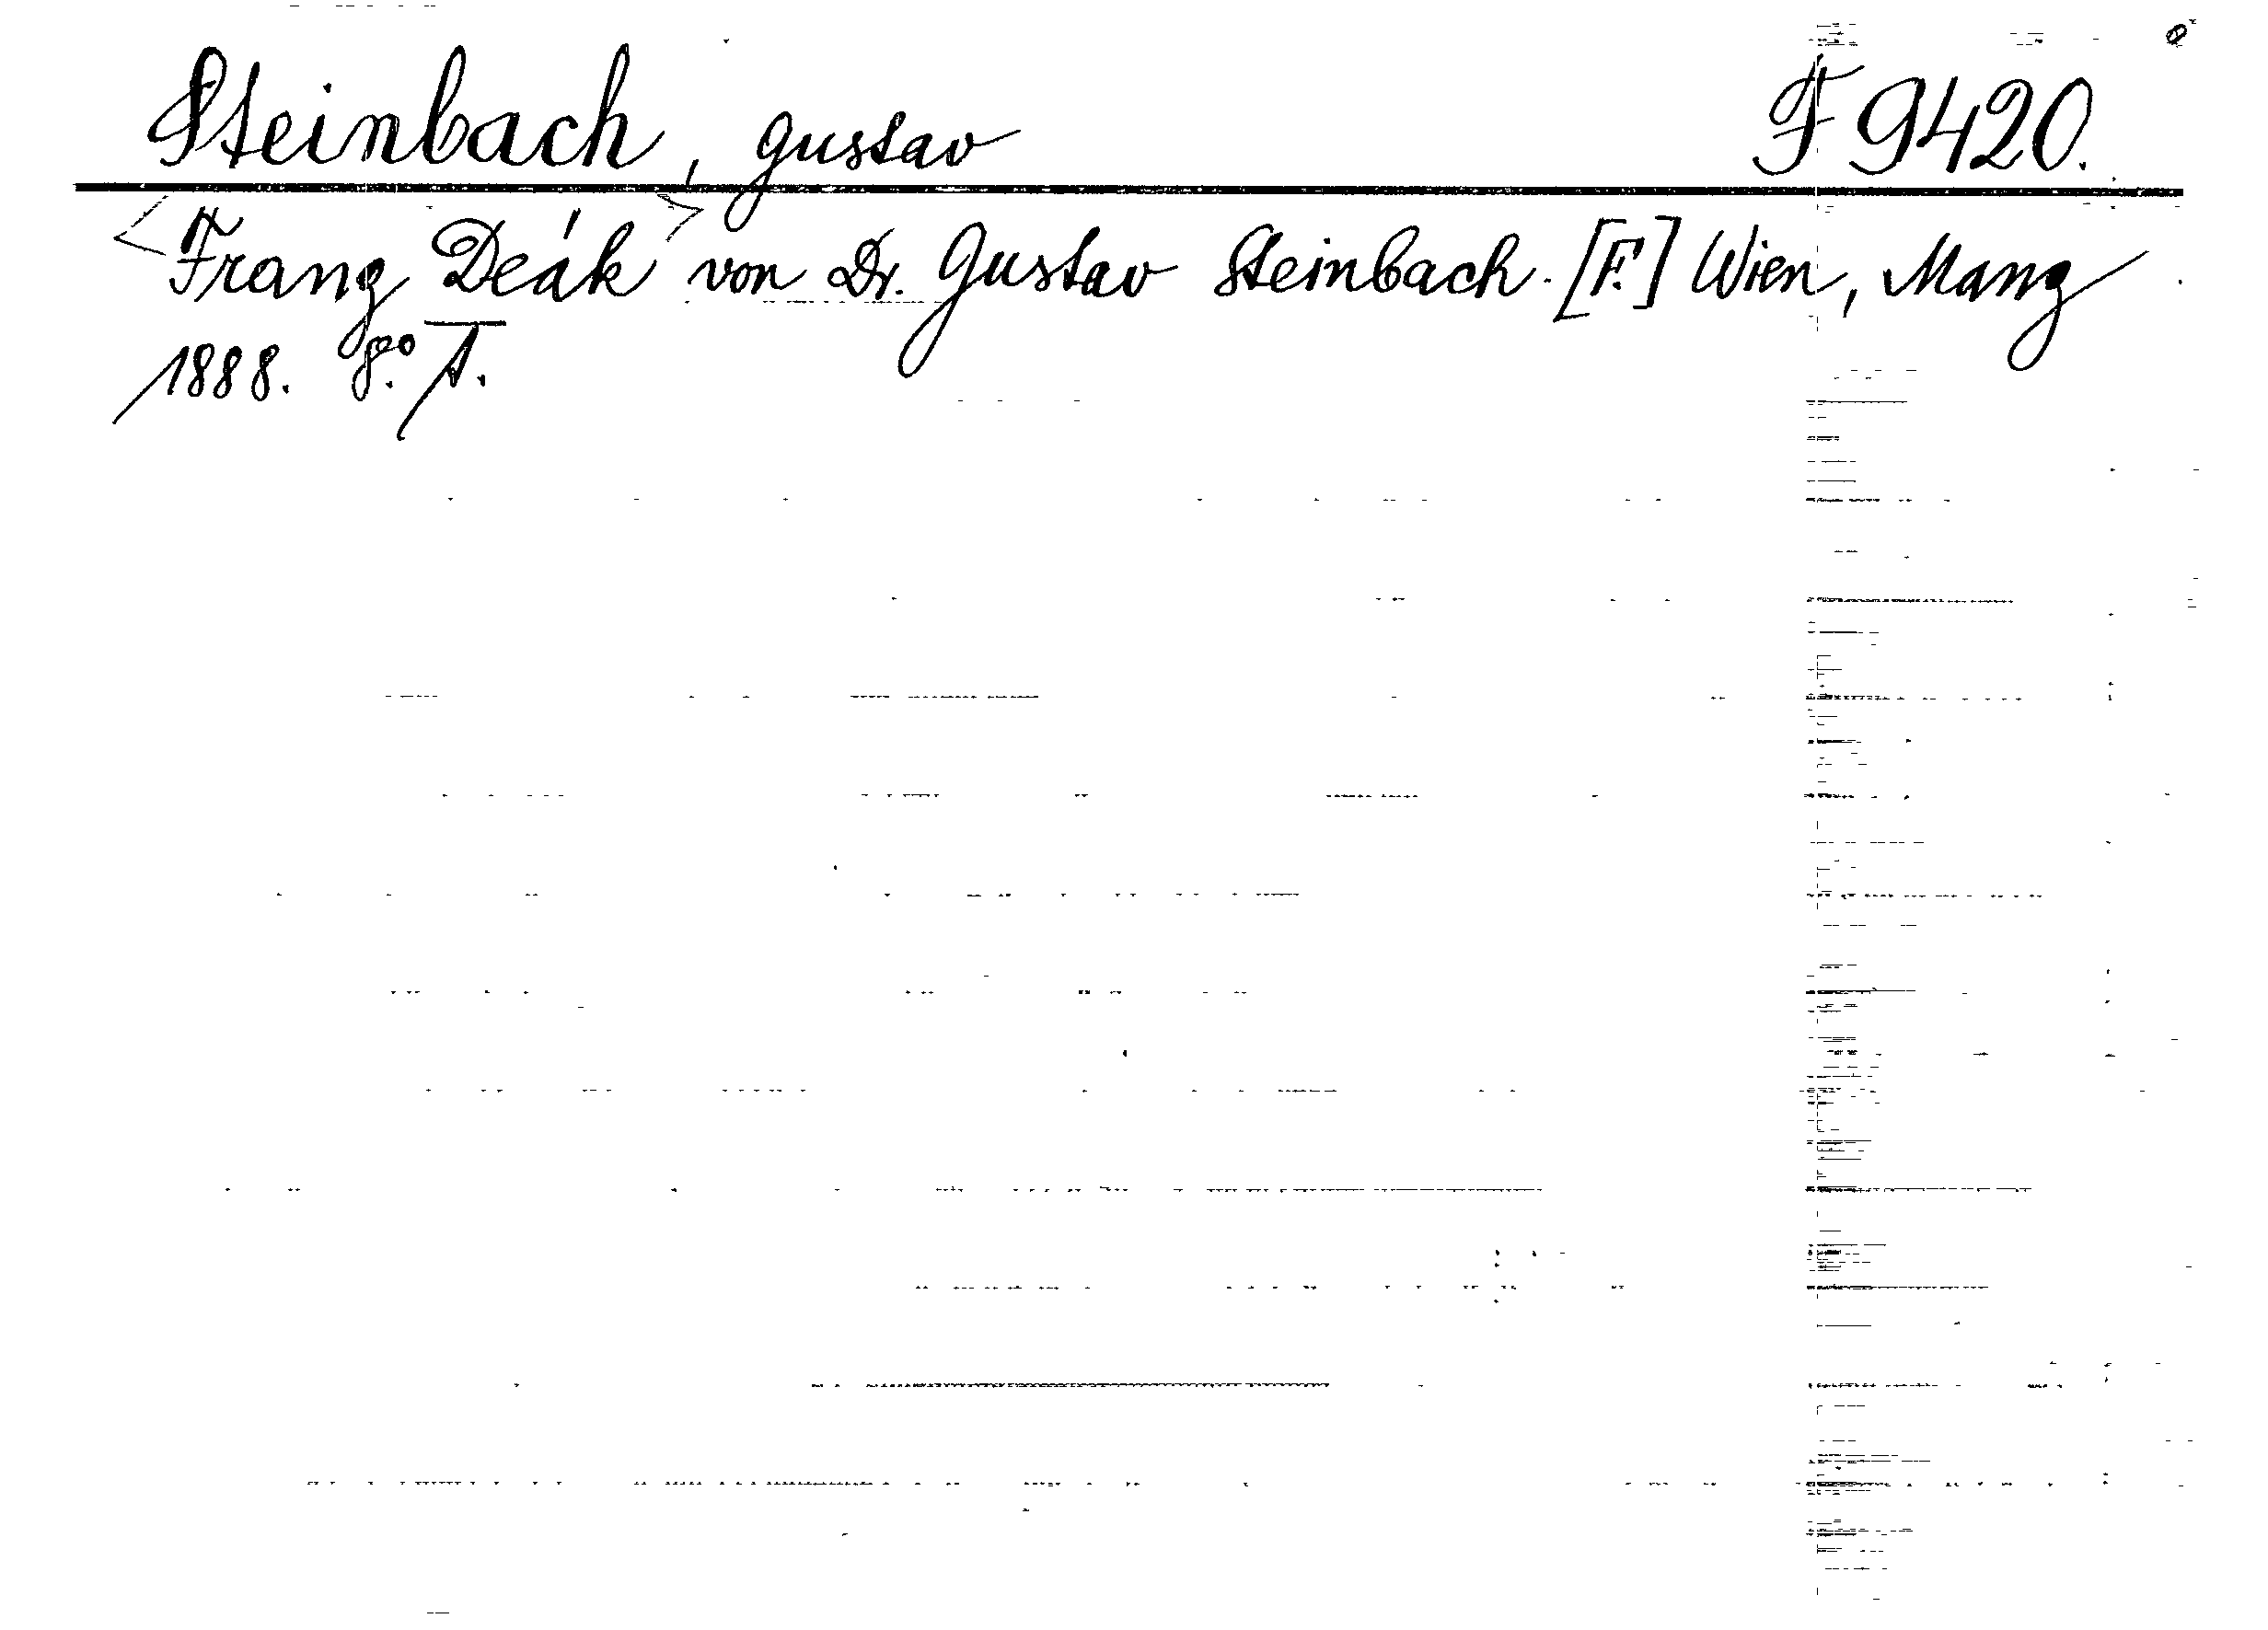 Steinbach, Gustav F 9420.
<Franz Deák> von Dr. Gustav Steinbach. [F.] Wien, Manz
1888. 8.º